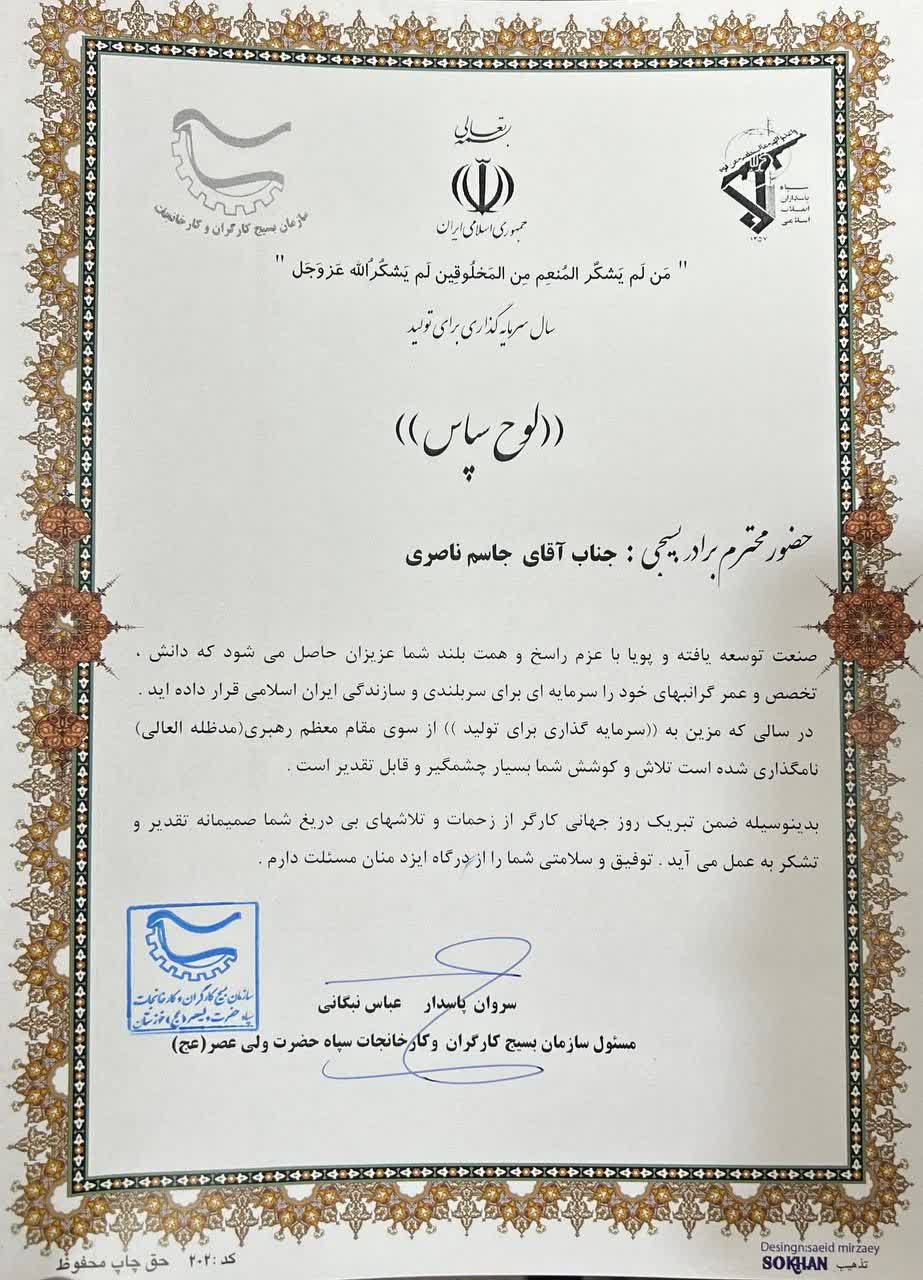 بسمه تعالی
جمهوری اسلامی ایران
سازمان بسیج کارگران و کارخانجات
سپاه
پاسداران
انقلاب
اسلامی
۱۳۵۷
" مَن لَم یَشکُر المُنعِم مِن المَخلُوقین لَم یَشکُرُالله عَزوَجَل "
سال سرمایه گذاری برای تولید
((لوح سپاس))
حضور محترم برادر بسیجی : جناب آقای جاسم ناصری
صنعت توسعه یافته و پویا با عزم راسخ و همت بلند شما عزیزان حاصل می شود که دانش ،
تخصص و عمر گرانبهای خود را سرمایه ای برای سربلندی و سازندگی ایران اسلامی قرار داده اید .
در سالی که مزین به ((سرمایه گذاری برای تولید )) از سوی مقام معظم رهبری(مدظله العالی)
نامگذاری شده است تلاش و کوشش شما بسیار چشمگیر و قابل تقدیر است .
بدینوسیله ضمن تبریک روز جهانی کارگر از زحمات و تلاشهای بی دریغ شما صمیمانه تقدیر و
تشکر به عمل می آید . توفیق و سلامتی شما را از درگاه ایزد منان مسئلت دارم .
سازمان بسیج کارگران و کارخانجات
سپاه حضرت ولیعصر (عج) خوزستان
سروان پاسدار عباس نبگانی
مسئول سازمان بسیج کارگران وکارخانجات سپاه حضرت ولی عصر(عج)
کد :۲۰۲ حق چاپ محفوظ
Desingn:saeid mirzaey
تذهیب SOKHAN